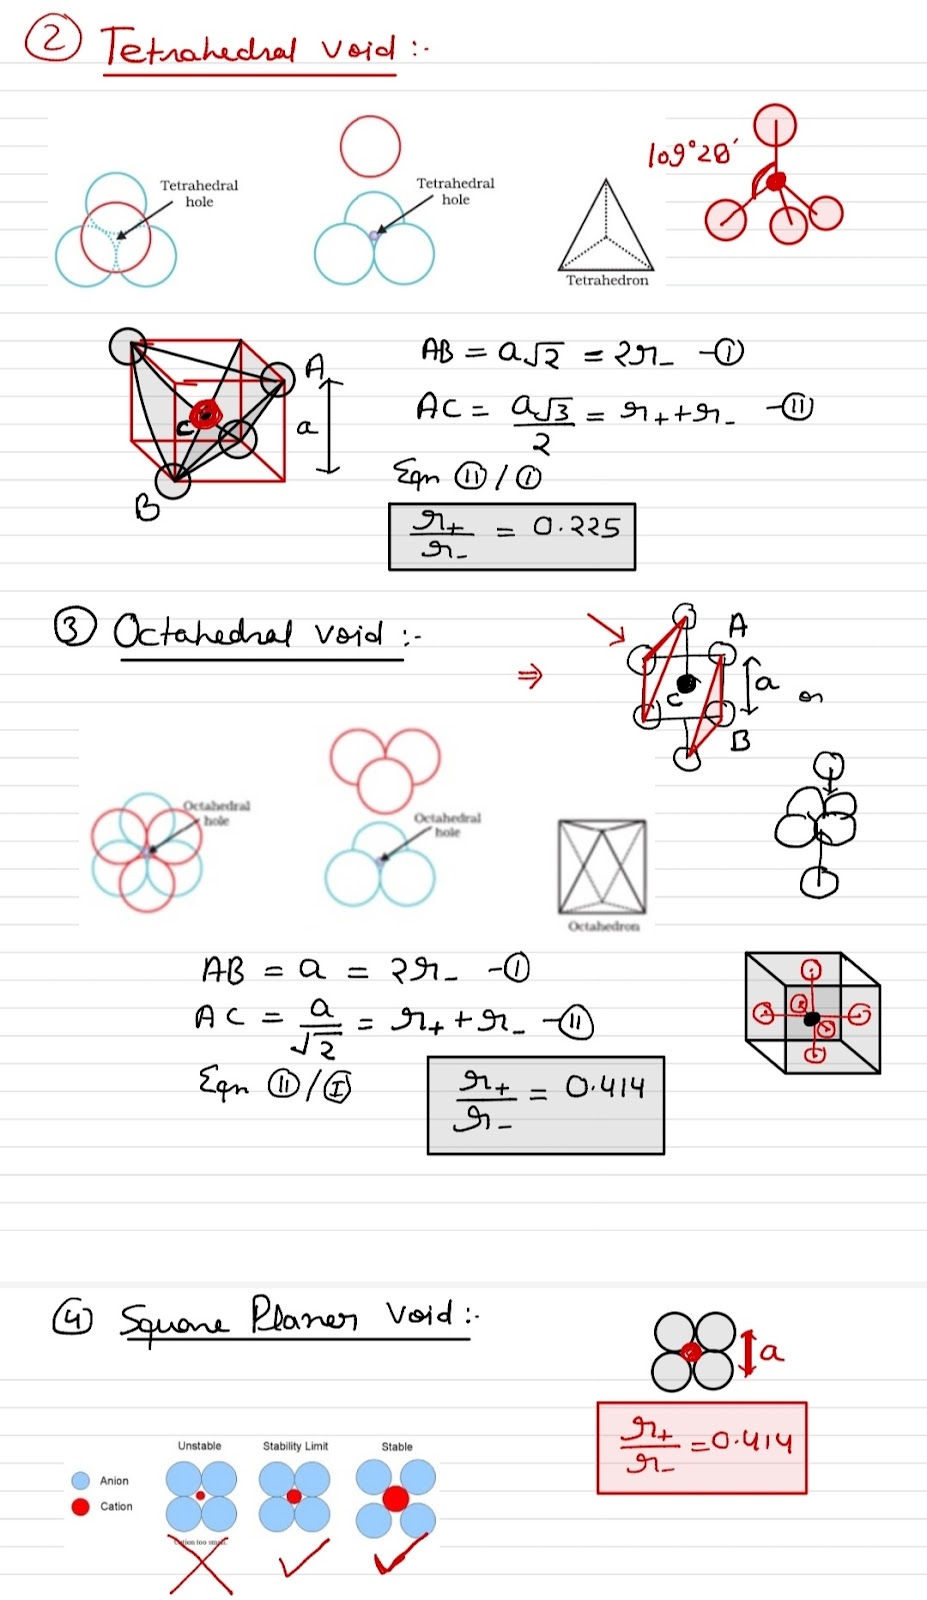 ② Tetrahedral void :-
109°28'
Tetrahedral
hole
Tetrahedral
hole
Tetrahedron
A
a
C
B
AB = a√2 = 2r₋ -①
AC = a√3/2 = r₊ + r₋ -⑪
Eqn ⑪ / ①
r₊/r₋ = 0.225
③ Octahedral void :-
⇒
A
a
C
B
or
Octahedral
hole
Octahedral
hole
Octahedron
AB = a = 2r₋ -①
AC = a/√2 = r₊ + r₋ -⑪
Eqn ⑪/Ⓘ
r₊/r₋ = 0.414
④ Square Planer Void :-
a
r₊/r₋ = 0.414
Unstable
Stability Limit
Stable
Anion
Cation